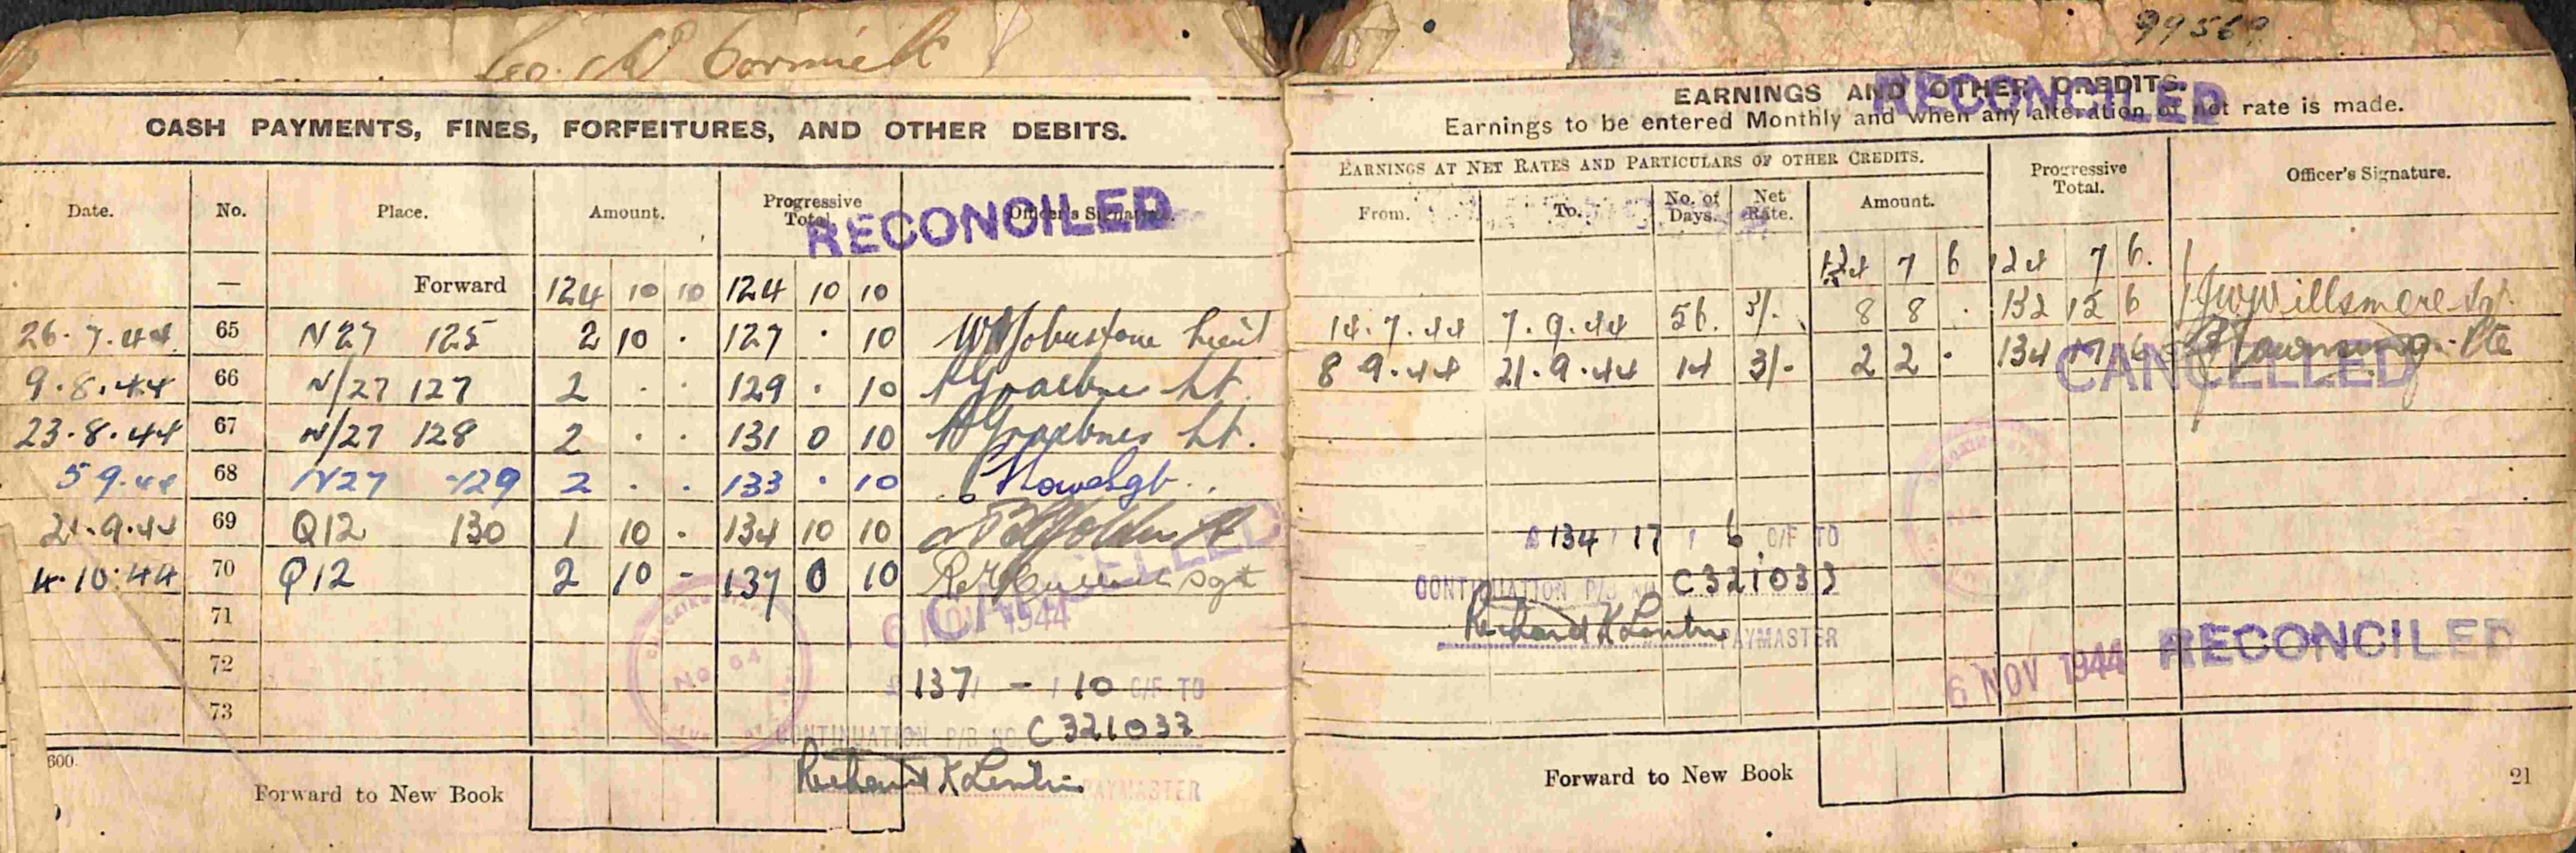 Leo. McCormick
CASH PAYMENTS, FINES, FORFEITURES, AND OTHER DEBITS.
RECONCILED
Date. No. Place. Amount. Progressive Total. Officer's Signature.
— Forward 124 10 10 124 10 10
26.7.44 65 N27 125 2 10 . 127 . 10 W Johnstone Lieut
9.8.44 66 N/27 127 2 . . 129 . 10 Lt.
23.8.44 67 N/27 128 2 . . 131 0 10 Lt.
5 9.44 68 N27 129 2 . . 133 . 10
21.9.44 69 Q12 130 1 10 - 134 10 10
4.10.44 70 Q12 2 10 - 137 0 10 Sgt
CANCELLED
71
6 NOV 1944
No 64
72
£137 - 10 C/F TO
73
CONTINUATION P/B NO C321033
600.
Richard K Lentin PAYMASTER
Forward to New Book
9956
EARNINGS AND OTHER CREDITS.
RECONCILED
Earnings to be entered Monthly and when any alteration of net rate is made.
EARNINGS AT NET RATES AND PARTICULARS OF OTHER CREDITS. Progressive Total. Officer's Signature.
From. To. No. of Days. Net Rate. Amount.
124 7 6 124 7 6.
14.7.44 7.9.44 56. 3/- 8 8 . 132 15 6 Willsmore Sgt
8 9.44 21.9.44 14 3/- 2 2 . 134 17 6 Pte
CANCELLED
£134 17 6 C/F TO
CONTINUATION P/B NO C321033
Richard K Lentin PAYMASTER
6 NOV 1944 RECONCILED
Forward to New Book
21